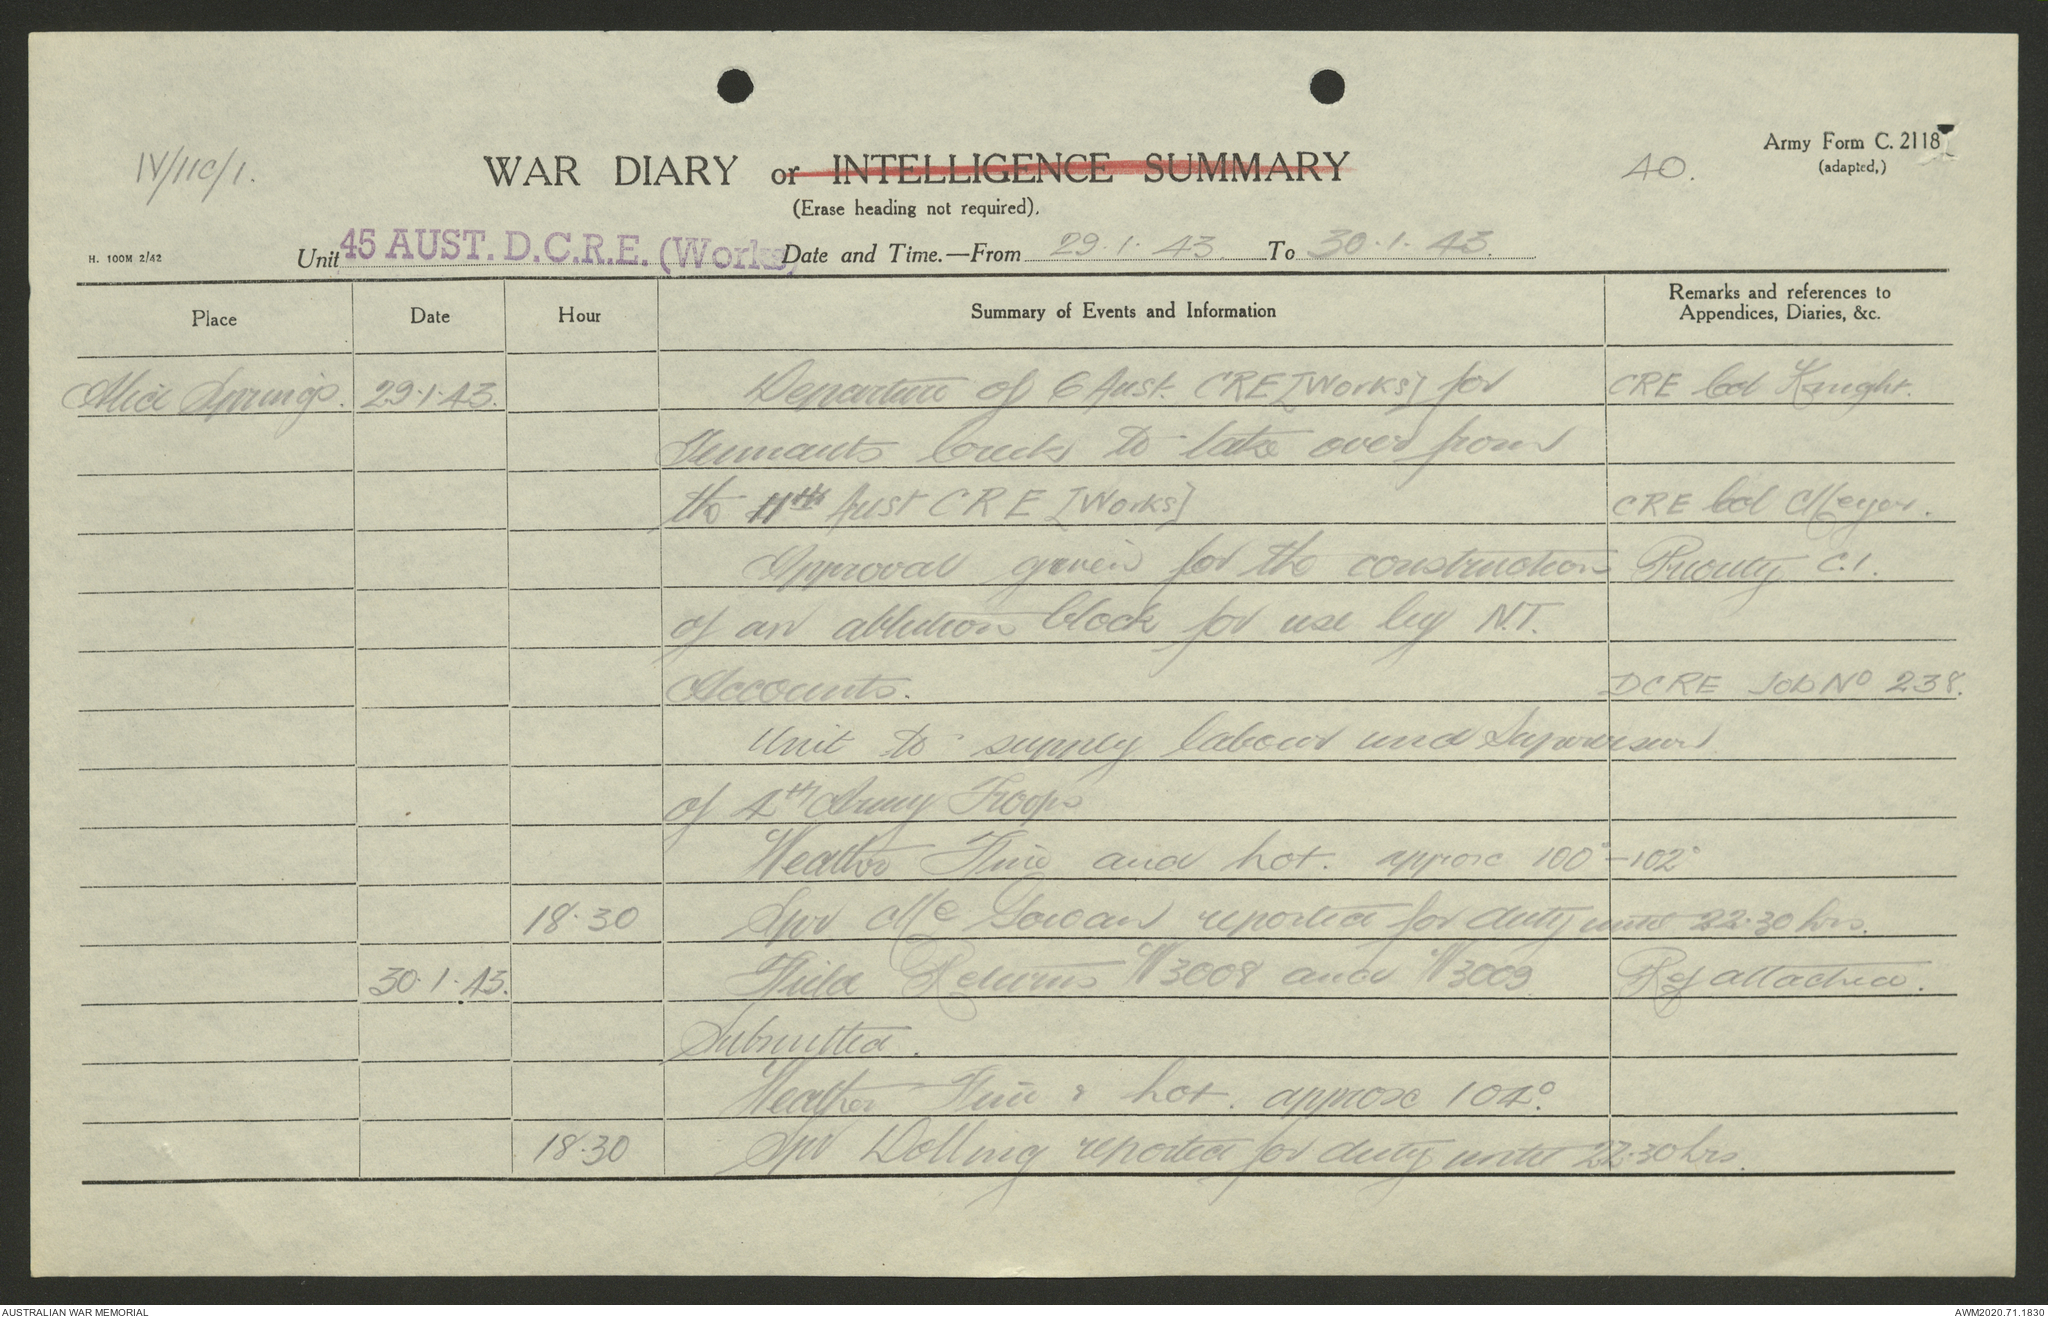 IV/11C/1.
WAR DIARY or INTELLIGENCE SUMMARY
(Erase heading not required).
40.
Army Form C. 2118
(adapted,)
H. 100M 2/42
Unit 45 AUST. D.C.R.E. (Works) Date and Time.—From 29.1.43. To 30.1.43.
Place Date Hour Summary of Events and Information Remarks and references to
Appendices, Diaries, &c.
Alice Springs. 29.1.43. Departure of 6 Aust. CRE [Works] for CRE Col Knight.
Tennants Creek to take over from
the 11th Aust CRE [Works] CRE Col Meyer.
Approval given for the construction Priority C.1.
of an ablution block for use by N.T.
Accounts. DCRE Job No 238.
Unit to supply labour and Supervision
of 4th Army Troops
Weather Fine and hot. approx 100°-102°
18.30 Spr Mc Gowan reported for duty until 22.30 hrs.
30.1.43. Field Returns W3008 and W3009 Ref attached.
Submitted.
Weather Fine & hot. approx 104°.
18.30 Spr Dolling reported for duty until 22.30 hrs.
AUSTRALIAN WAR MEMORIAL
AWM2020.71.1830